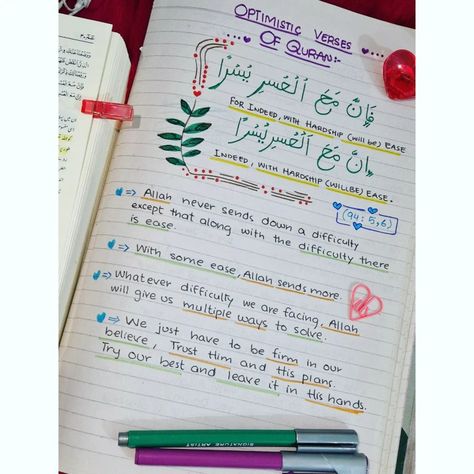 OPTIMISTIC VERSES
OF QURAN:-
فَإِنَّ مَعَ الْعُسْرِ يُسْرًا
FOR INDEED, WITH HARDSHIP (will be) EASE
إِنَّ مَعَ الْعُسْرِ يُسْرًا
INDEED, WITH HARDSHIP (WILLBE) EASE.
(94:5,6)
⇒ Allah never sends down a difficulty
except that along with the difficulty there
is ease.
⇒ With some ease, Allah sends more.
⇒ Whatever difficulty we are facing, Allah
will give us multiple ways to solve.
⇒ We just have to be firm in our
believe, Trust Him and His plans.
Try our best and leave it in His hands.
SIGNATURE ARTIST